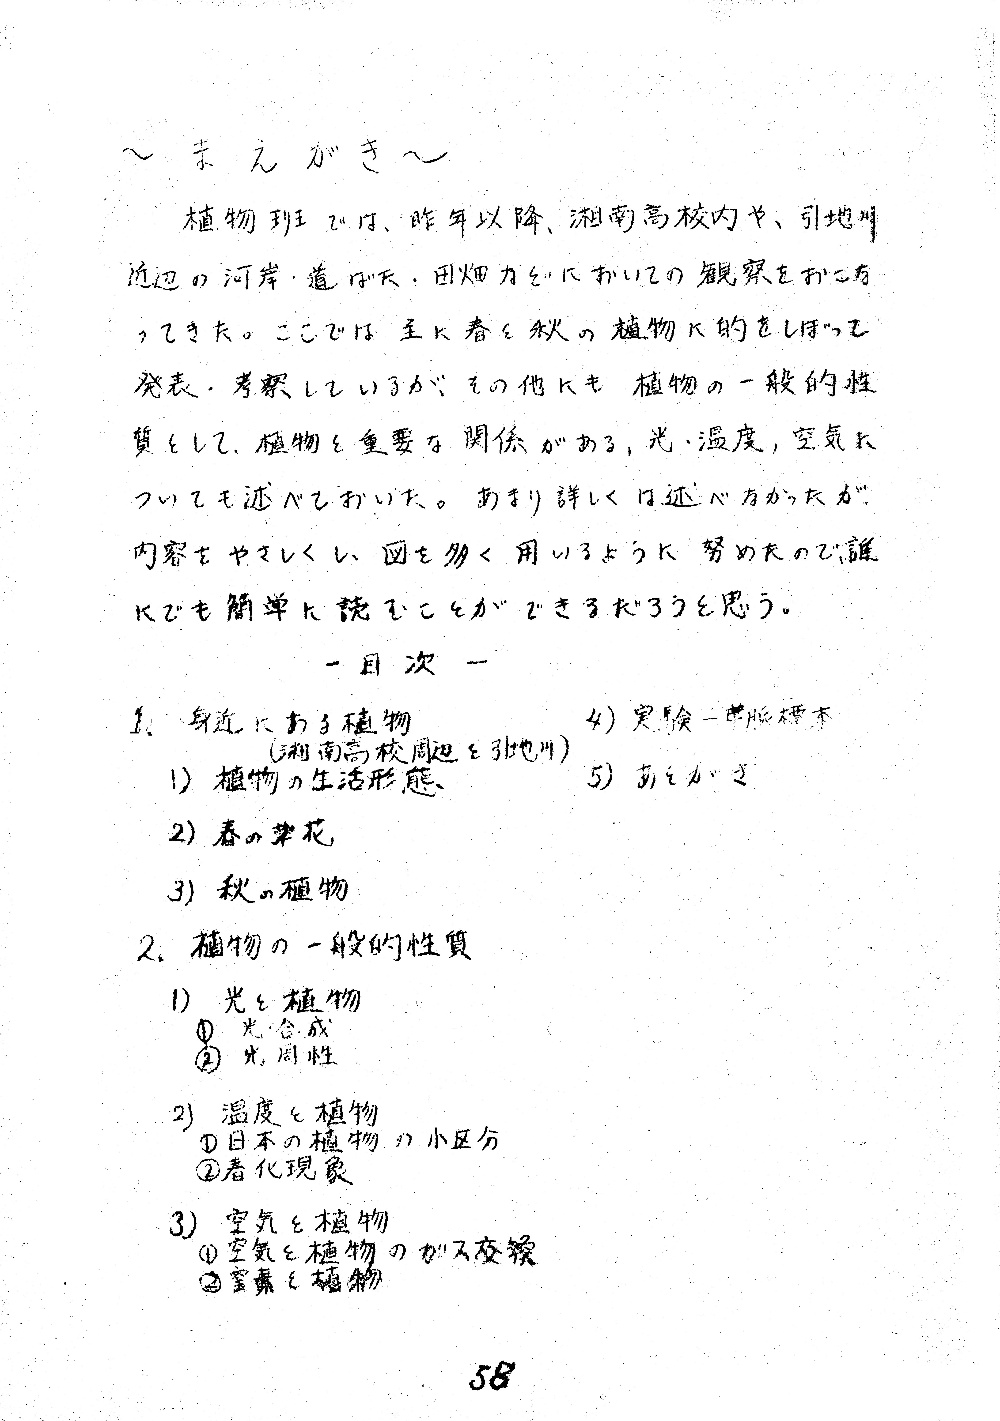 ～まえがき～
植物班では、昨年以降、湘南高校内や、引地川
近辺の河岸・道ばた・田畑などにおいての観察をおこな
ってきた。ここでは主に春と秋の植物に的をしぼって
発表・考察しているが、その他にも植物の一般的性
質として、植物と重要な関係がある,光・温度,空気に
ついても述べておいた。あまり詳しくは述べなかったが、
内容をやさしくし、図を多く用いるように努めたので、誰
にでも簡単に読むことができるだろうと思う。
―目次―
1. 身近にある植物
(湘南高校周辺と引地川)
1) 植物の生活形態
2) 春の草花
3) 秋の植物
2. 植物の一般的性質
1) 光と植物
① 光合成
② 光周性
2) 温度と植物
①日本の植物の小区分
②春化現象
3) 空気と植物
①空気と植物のガス交換
②窒素と植物
4) 実験―葉脈標本
5) あとがき
58